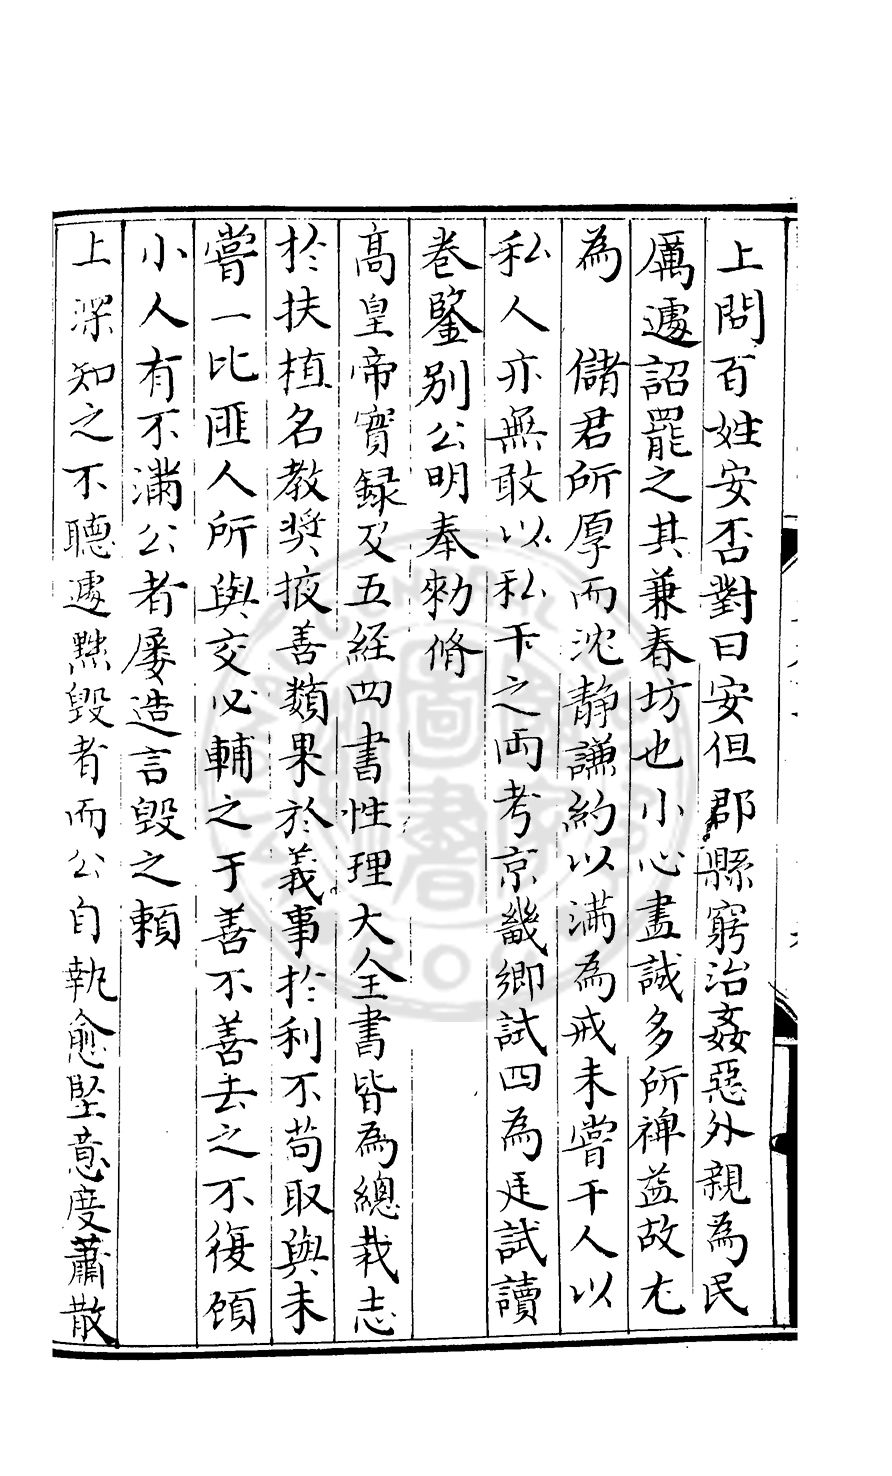 上問百姓安否對曰安但郡縣窮治姦惡外親為民
厲遽詔罷之其兼春坊也小心盡誠多所裨益故尤
為　儲君所厚而沈静謙約以滿為戒未嘗干人以
私人亦無敢以私干之両考京畿鄉試四為廷試讀
卷鑒别公明奉勑脩
高皇帝實録及五經四書性理大全書皆為總裁志
於扶植名教奬掖善類果於義事於利不苟取與未
嘗一比匪人所與交必輔之于善不善去之不復顧
小人有不滿公者屡造言毁之頼
上深知之不聽遽黜毁者而公自執愈堅意度蕭散